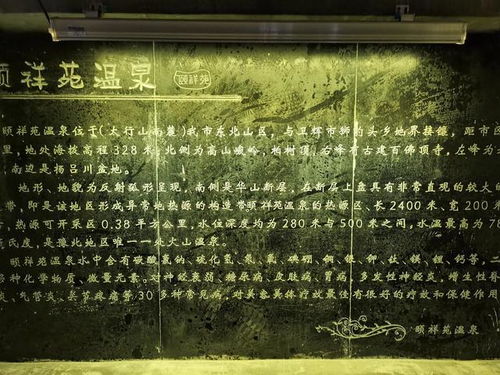 颐祥苑温泉 颐祥苑
颐祥苑温泉位于(太行山南麓)我市东北山区,与卫辉市狮豹头乡地界接攘,距市区
里,地处海拔高程328米。北侧为高山峻岭,柏树顶,右峰有古建百佛顶寺,左峰为
,南边是杨吕川盆地。
地形、地貌为反射弧形呈现,南侧是华山断层,在断层上盘具有非常直观的较大
带,即是该地区形成异常地热源的构造带颐祥苑温泉的热源区、长2400米、宽200
,热源可开采区0.38平方公里,水位深度均为280米与500米之间,水温最高为
氏度,是豫北地区唯一一处火山温泉。
颐祥苑温泉水中含有硫酸氢钠、硫化氢、氡、氟、硼、铜、银、钾、钛、镁、锂、钙等,二
多种化学物质、微量元素。对神经衰弱、糖尿病、皮肤病、胃病、多发性神经炎、增生性
炎、气管炎、关节疼痛等30多种常见病,对美容美体疗放最佳有很好的疗效和保健作用
颐祥苑温泉